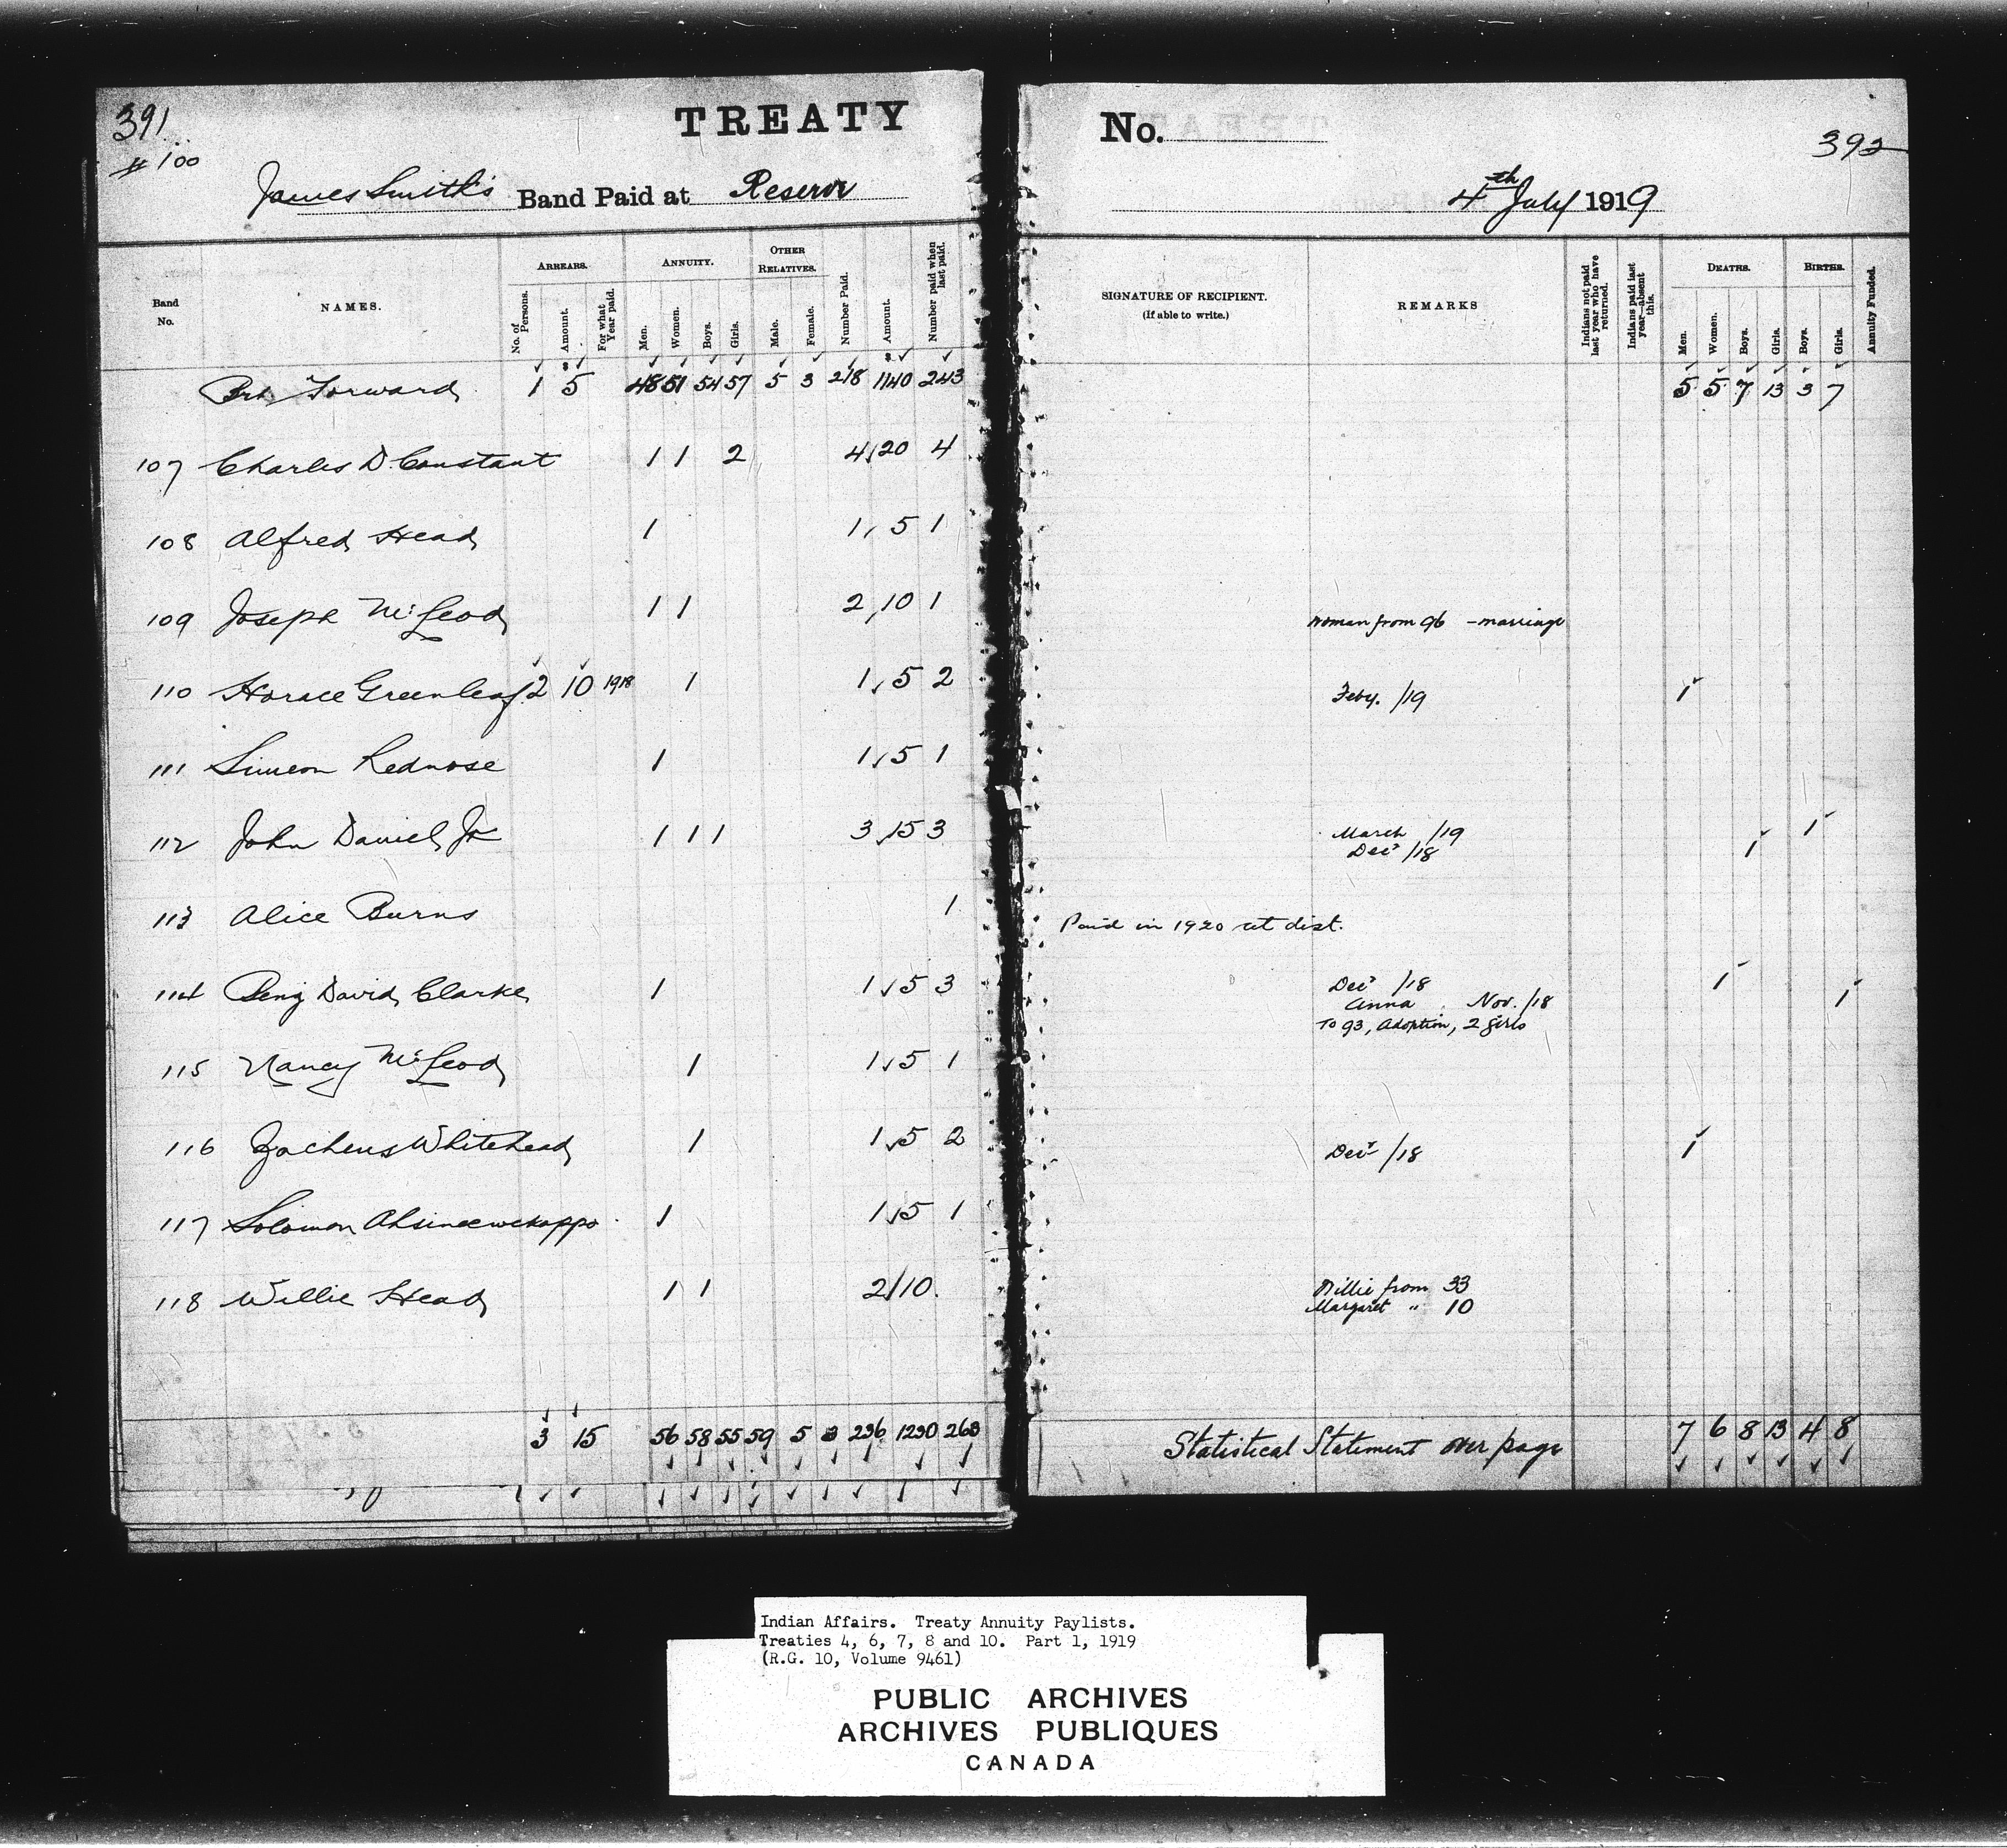 391
# 100
TREATY No. 392
James Smith's Band Paid at Reserve 4th July 1919
Band No. NAMES. ARREARS. No. of Persons. Amount. For what Year paid. ANNUITY. Men. Women. Boys. Girls. OTHER RELATIVES. Male. Female. Number Paid. Amount. Number paid when last paid. SIGNATURE OF RECIPIENT. (If able to write.) REMARKS Indians not paid last year who have returned. Indians paid last year—absent this. DEATHS. Men. Women. Boys. Girls. BIRTHS. Boys. Girls. Annuity Funded.
Brt. Forward 1 5 48 51 54 57 5 3 218 1140 243 5 5 7 13 3 7
107 Charles D. Constant 1 1 2 4 20 4
108 Alfred Head 1 1 5 1
109 Joseph McLeod 1 1 2 10 1 Woman from 96 - marriage
110 Horace Greenleaf 2 10 1918 1 1 5 2 Feby. /19 1
111 Simeon Rednose 1 1 5 1
112 John Daniel Jr 1 1 1 3 15 3 March /19 1
Decr /18 1
113 Alice Burns 1 Paid in 1920 at dist.
114 Benj David Clarke 1 1 5 3 Decr /18 1
Anna Nov. /18 1
To 93, Adoption, 2 girls
115 Nancy McLeod 1 1 5 1
116 Zacheus Whitehead 1 1 5 2 Decr /18 1
117 Solomon Ahsineewekappo 1 1 5 1
118 Willie Head 1 1 2 10 Willie from 33
Margaret " 10
3 15 56 58 55 59 5 3 236 1230 263 Statistical Statement over page 7 6 8 13 4 8
Indian Affairs. Treaty Annuity Paylists.
Treaties 4, 6, 7, 8 and 10. Part 1, 1919
(R.G. 10, Volume 9461)
PUBLIC ARCHIVES
ARCHIVES PUBLIQUES
CANADA